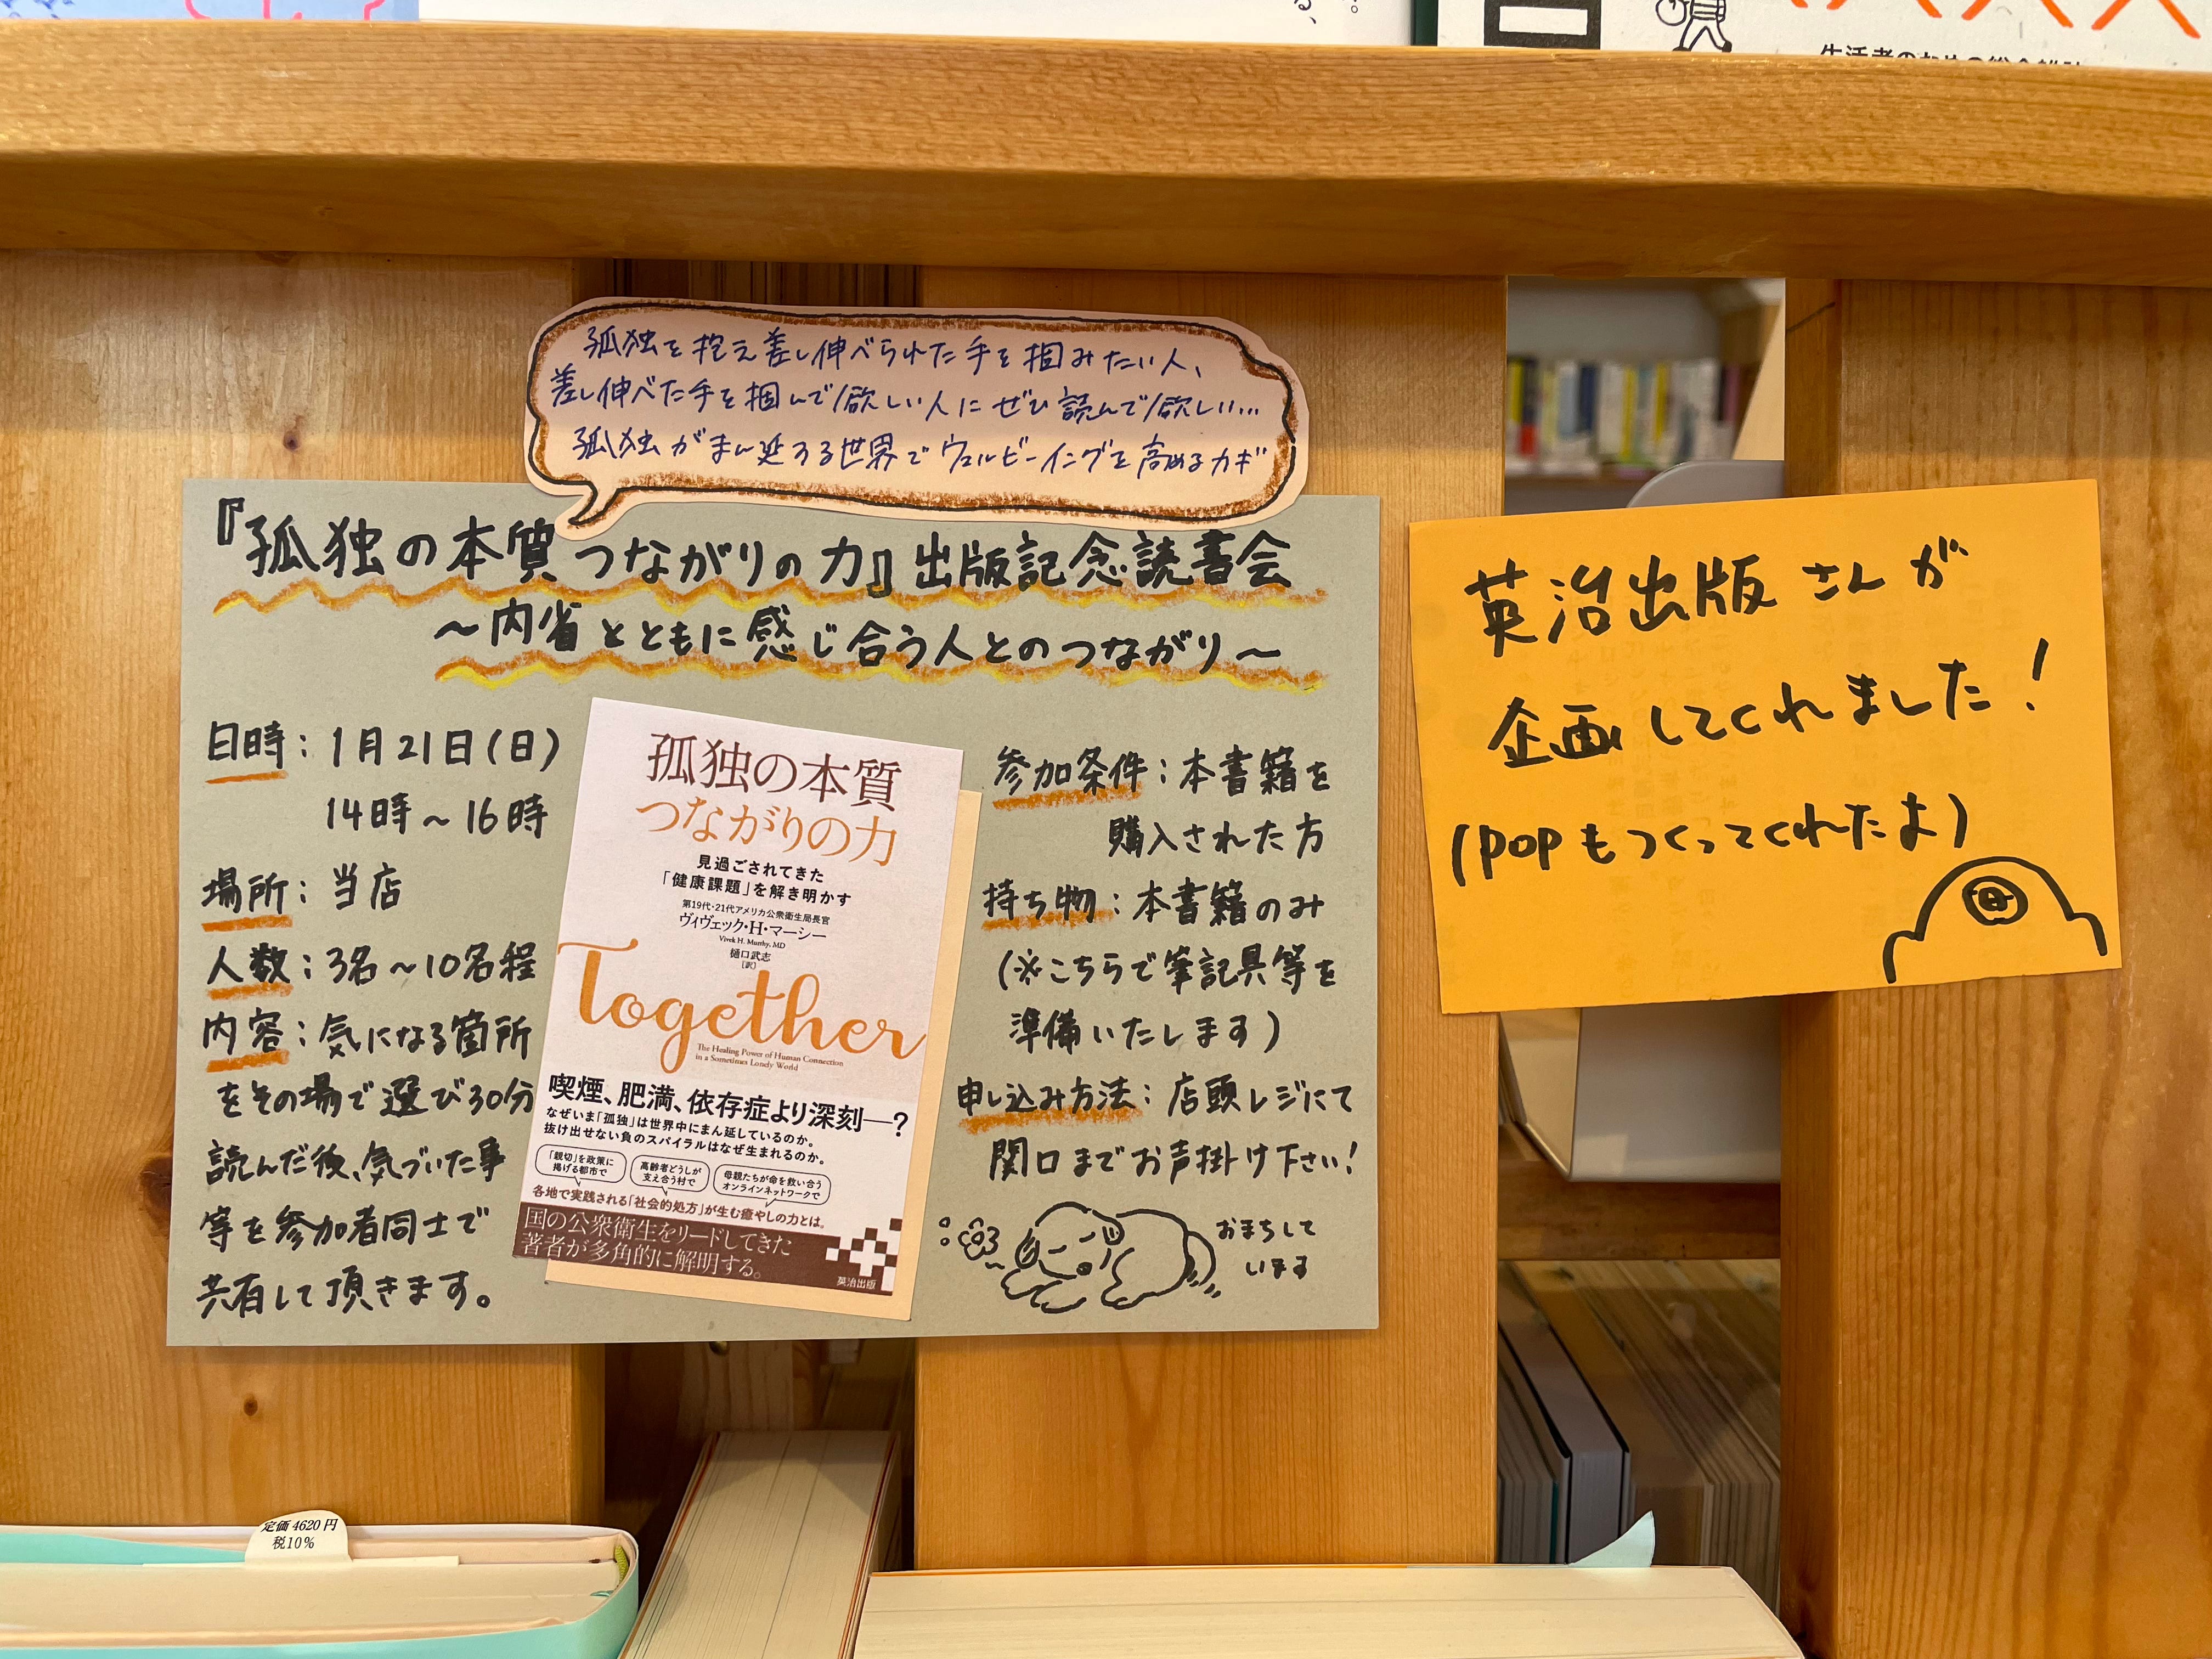 生活者のための総合雑誌
孤独を抱え差し伸べられた手を掴みたい人、
差し伸べた手を掴んで欲しい人にぜひ読んで欲しい…
孤独がまん延する世界でウェルビーイングを高めるカギ
『孤独の本質 つながりの力』出版記念読書会
～内省とともに感じ合う人とのつながり～
日時：1月21日(日)
14時～16時
場所：当店
人数：3名～10名程
内容：気になる箇所
をその場で選び30分
読んだ後、気づいた事
等を参加者同士で
共有して頂きます。
孤独の本質
つながりの力
見過ごされてきた
「健康課題」を解き明かす
第19代・21代アメリカ公衆衛生局長官
ヴィヴェック・H・マーシー
Vivek H. Murthy, MD
樋口武志
[訳]
Together
The Healing Power of Human Connection
in a Sometimes Lonely World
喫煙、肥満、依存症より深刻―?
なぜいま「孤独」は世界中にまん延しているのか。
抜け出せない負のスパイラルはなぜ生まれるのか。
「親切」を政策に
掲げる都市で
高齢者どうしが
支え合う村で
母親たちが命を救い合う
オンラインネットワークで
各地で実践される「社会的処方」が生む癒やしの力とは。
国の公衆衛生をリードしてきた
著者が多角的に解明する。
英治出版
参加条件：本書籍を
購入された方
持ち物：本書籍のみ
(※こちらで筆記具等を
準備いたします)
申し込み方法：店頭レジにて
関口までお声掛け下さい！
おまちして
います
英治出版さんが
企画してくれました！
(POPもつくってくれたよ)
定価4620円
税10%